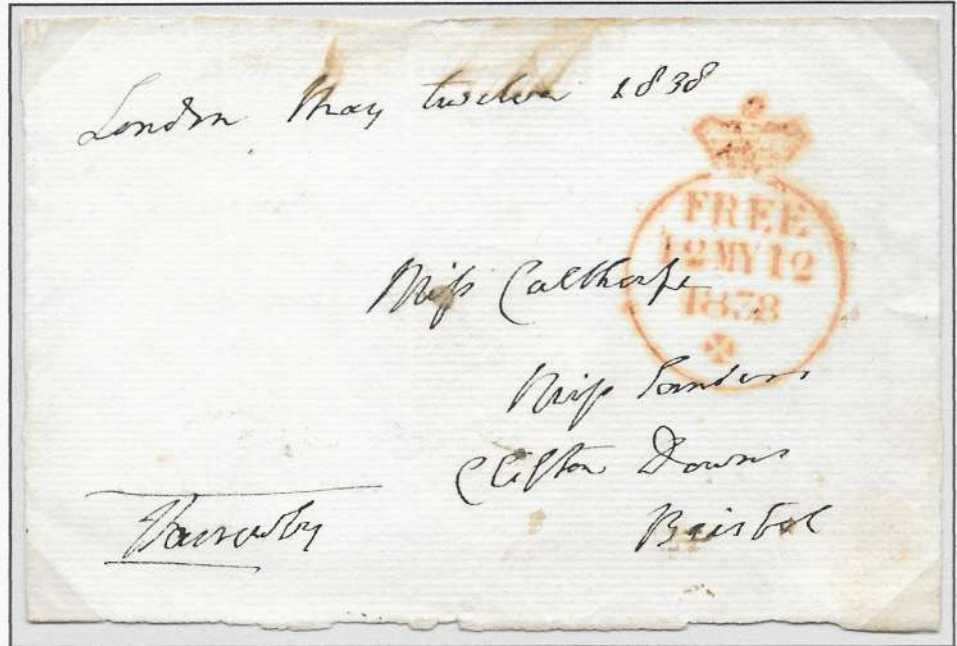 London May twelve 1838
FREE
12 MY 12
1838
Miss Calthorpe
Miss Sanders
Clifton Downs
Bristol